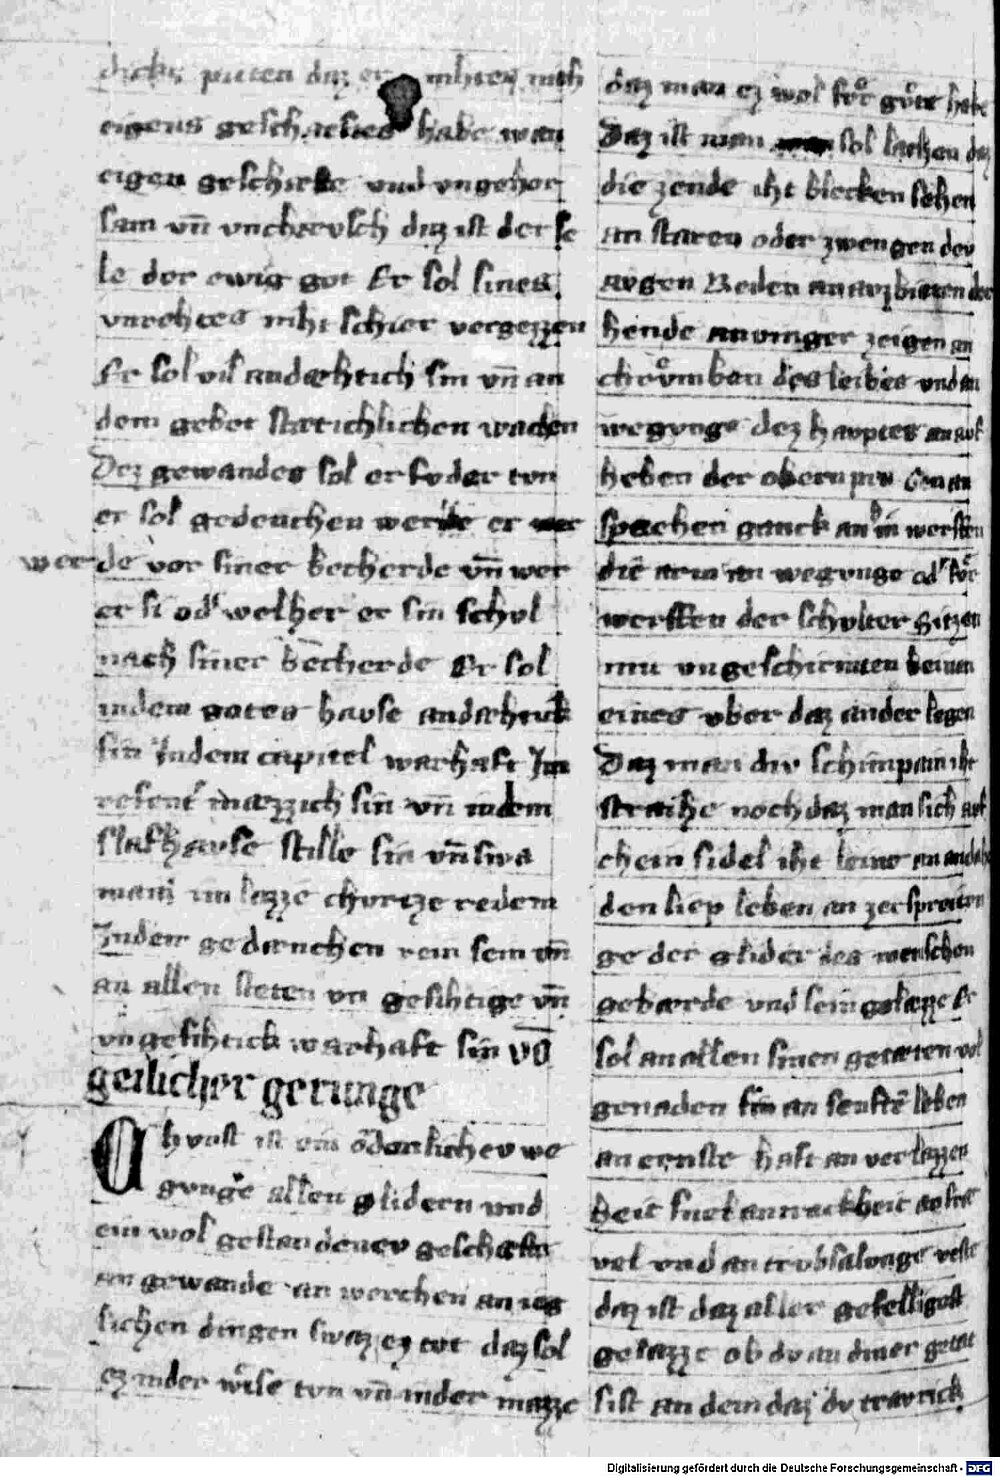 piten daz er nihtes niht
eigens habe wan
eigen geschrefte vnd vngehor
sam vn̄ vnchevsch daz ist der se
le der ewig got Er sol sines
vnrehtes niht schier vergezzen
Er sol vil andæhtich sin vn̄ an
dem gebet stætichlichen wachen
Dez gewandes sol er tvn
er sol gedenchen er
werde vor siner becherde vn̄ wer
er si od' welher er sin schvl
nach siner becherde Er sol
indem gotes havse andæhtick
sin Indem capitel warhaft Im
refent mæzzich sin vn̄ indem
slafhavse stille sin vn̄ swa
man im lazze chvrtze redem
Inden gedænchen rein sein vn̄
an allen steten vn gesihtige vn̄
vngesihtick warhaft sin vō
geilicher gerunge
Chvnst ist ein ordenlichev we
gvnge allen glidern vnd
ein wol gestandenev geschefte
an gewande an werchen an ieg
lichen dingen swaz ez tvt daz sol
ez inder wise tvn vn̄ inder mazze
daz man ez wol fvͦr gvͦte habe
Daz ist man sol lachen daz
die zende iht blecken sehen
an staren oder zwengen der
avgen Reden an avzbieten der
hende an vinger zeigen an
chrvͦmben des leibes vnd an
wegvnge dez havptes an avf
heben der obern pra Gen an
spechen ganck an hin werffen
die arm an wegvnge od' fvͦr
werffen der schvlter Sitzen
mit vngeschrenten beinen
eines vber daz ander legen
Daz man div schinpain iht
straihe noch daz man sich avf
chein sidel iht leine an
den liep leben an zerspreitvn
ge der glider des menschen
gebærde vnd sein gelæzze Er
sol an allen sinen getæten vol
genaden sin an senftē leben
an ernste haft an verlazzen
heit snel an nackheit an
vel vnd an trvbsalvnge veste
daz ist daz aller gefelligest
gelazze ob dv an diner getat
sist an dem daz dv travrick